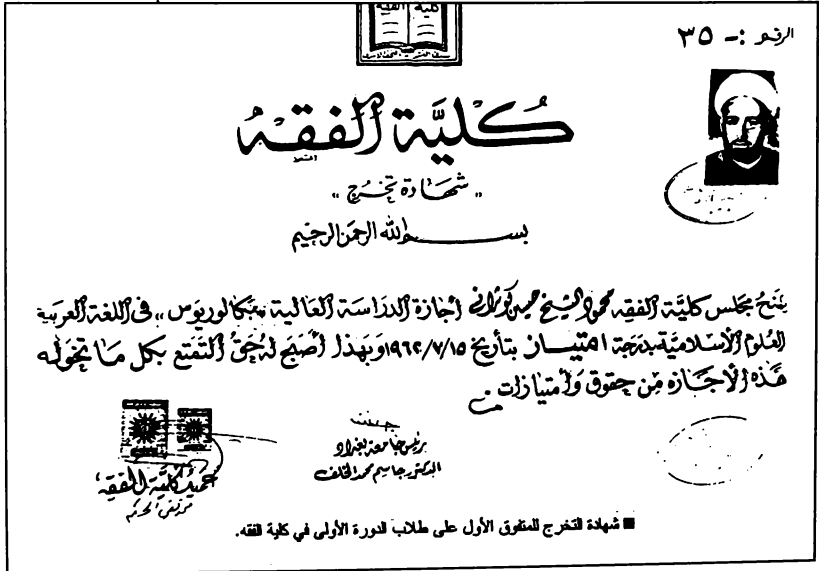 كلية الفقه
الرقم :- ٣٥
كلية الفقه
"شهادة تخرج"
بسم الله الرحمن الرحيم
يمنح مجلس كلية الفقه محمود الشيخ حسين كوثراني أجازة الدراسة العالية "بكالوريوس" في اللغة العربية
العلوم الاسلامية بدرجة امتياز بتأريخ ١٩٦٢/٧/١٥ وبهذا أصبح له حق التمتع بكل ما تخوله
هذه الاجازه من حقوق وأمتيازات
رئيس جامعة بغداد
الدكتور جاسم محمد الخلف
عميد كلية الفقه
■ شهادة التخرج للمتفوق الأول على طلاب الدورة الأولى في كلية الفقه.